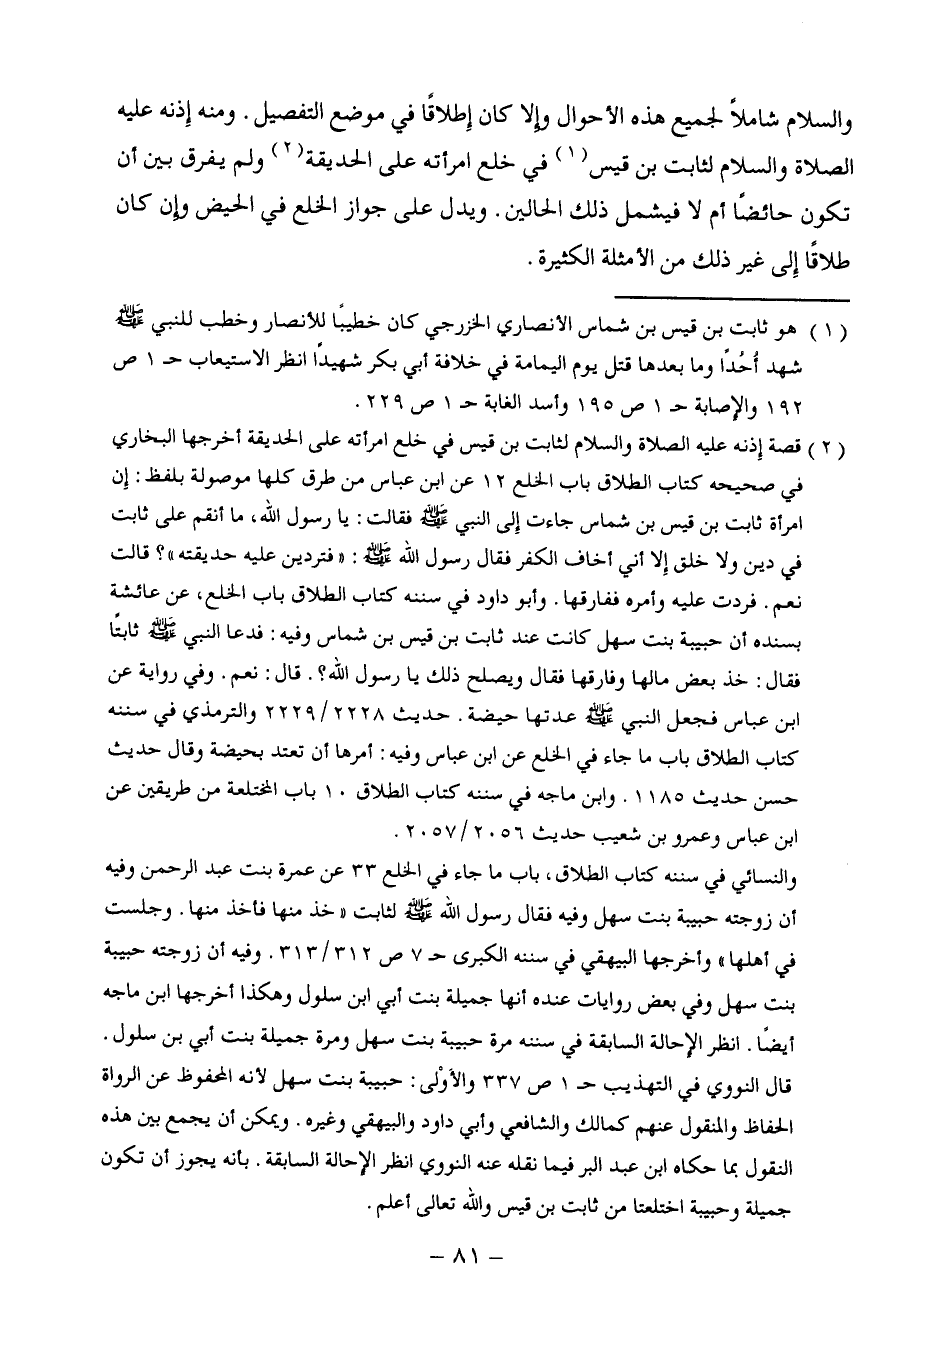 والسلام شاملاً لجميع هذه الأحوال وإلا كان إطلاقًا في موضع التفصيل . ومنه إذنه عليه
الصلاة والسلام لثابت بن قيس(١) في خلع امرأته على الحديقة(٢) ولم يفرق بين أن
تكون حائضًا أم لا فيشمل ذلك الحالين . ويدل على جواز الخلع في الحيض وإن كان
طلاقًا إلى غير ذلك من الأمثلة الكثيرة .
(١) هو ثابت بن قيس بن شماس الأنصاري الخزرجي كان خطيبًا للأنصار وخطب للنبي ﷺ
شهد أُحُدًا وما بعدها قتل يوم اليمامة في خلافة أبي بكر شهيدًا انظر الاستيعاب حـ ١ ص
١٩٢ والإصابة حـ ١ ص ١٩٥ وأسد الغابة حـ ١ ص ٢٢٩.
(٢) قصة إذنه عليه الصلاة والسلام لثابت بن قيس في خلع امرأته على الحديقة أخرجها البخاري
في صحيحه كتاب الطلاق باب الخلع ١٢ عن ابن عباس من طرق كلها موصولة بلفظ : إن
امرأة ثابت بن قيس بن شماس جاءت إلى النبي ﷺ فقالت : يا رسول الله، ما أنقم على ثابت
في دين ولا خلق إلا أني أخاف الكفر فقال رسول الله ﷺ : « فتردين عليه حديقته »؟ قالت
نعم . فردت عليه وأمره ففارقها . وأبو داود في سننه كتاب الطلاق باب الخلع، عن عائشة
بسنده أن حبيبة بنت سهل كانت عند ثابت بن قيس بن شماس وفيه : فدعا النبي ﷺ ثابتًا
فقال : خذ بعض مالها وفارقها فقال ويصلح ذلك يا رسول الله؟. قال : نعم . وفي رواية عن
ابن عباس فجعل النبي ﷺ عدتها حيضة . حديث ٢٢٢٩/٢٢٢٨ والترمذي في سننه
كتاب الطلاق باب ما جاء في الخلع عن ابن عباس وفيه : أمرها أن تعتد بحيضة وقال حديث
حسن حديث ١١٨٥ . وابن ماجه في سننه كتاب الطلاق ١٠ باب المختلعة من طريقين عن
ابن عباس وعمرو بن شعيب حديث ٢٠٥٧/٢٠٥٦ .
والنسائي في سننه كتاب الطلاق، باب ما جاء في الخلع ٣٣ عن عمرة بنت عبد الرحمن وفيه
أن زوجته حبيبة بنت سهل وفيه فقال رسول الله ﷺ لثابت « خذ منها فأخذ منها . وجلست
في أهلها » وأخرجها البيهقي في سننه الكبرى حـ ٧ ص ٣١٣/٣١٢ . وفيه أن زوجته حبيبة
بنت سهل وفي بعض روايات عنده أنها جميلة بنت أبي ابن سلول وهكذا أخرجها ابن ماجه
أيضًا . انظر الإحالة السابقة في سننه مرة حبيبة بنت سهل ومرة جميلة بنت أبي بن سلول .
قال النووي في التهذيب حـ ١ ص ٣٣٧ والأوْلى : حبيبة بنت سهل لأنه المحفوظ عن الرواة
الحفاظ والمنقول عنهم كمالك والشافعي وأبي داود والبيهقي وغيره . ويمكن أن يجمع بين هذه
النقول بما حكاه ابن عبد البر فيما نقله عنه النووي انظر الإحالة السابقة . بأنه يجوز أن تكون
جميلة وحبيبة اختلعتا من ثابت بن قيس والله تعالى أعلم .
– ٨١ –